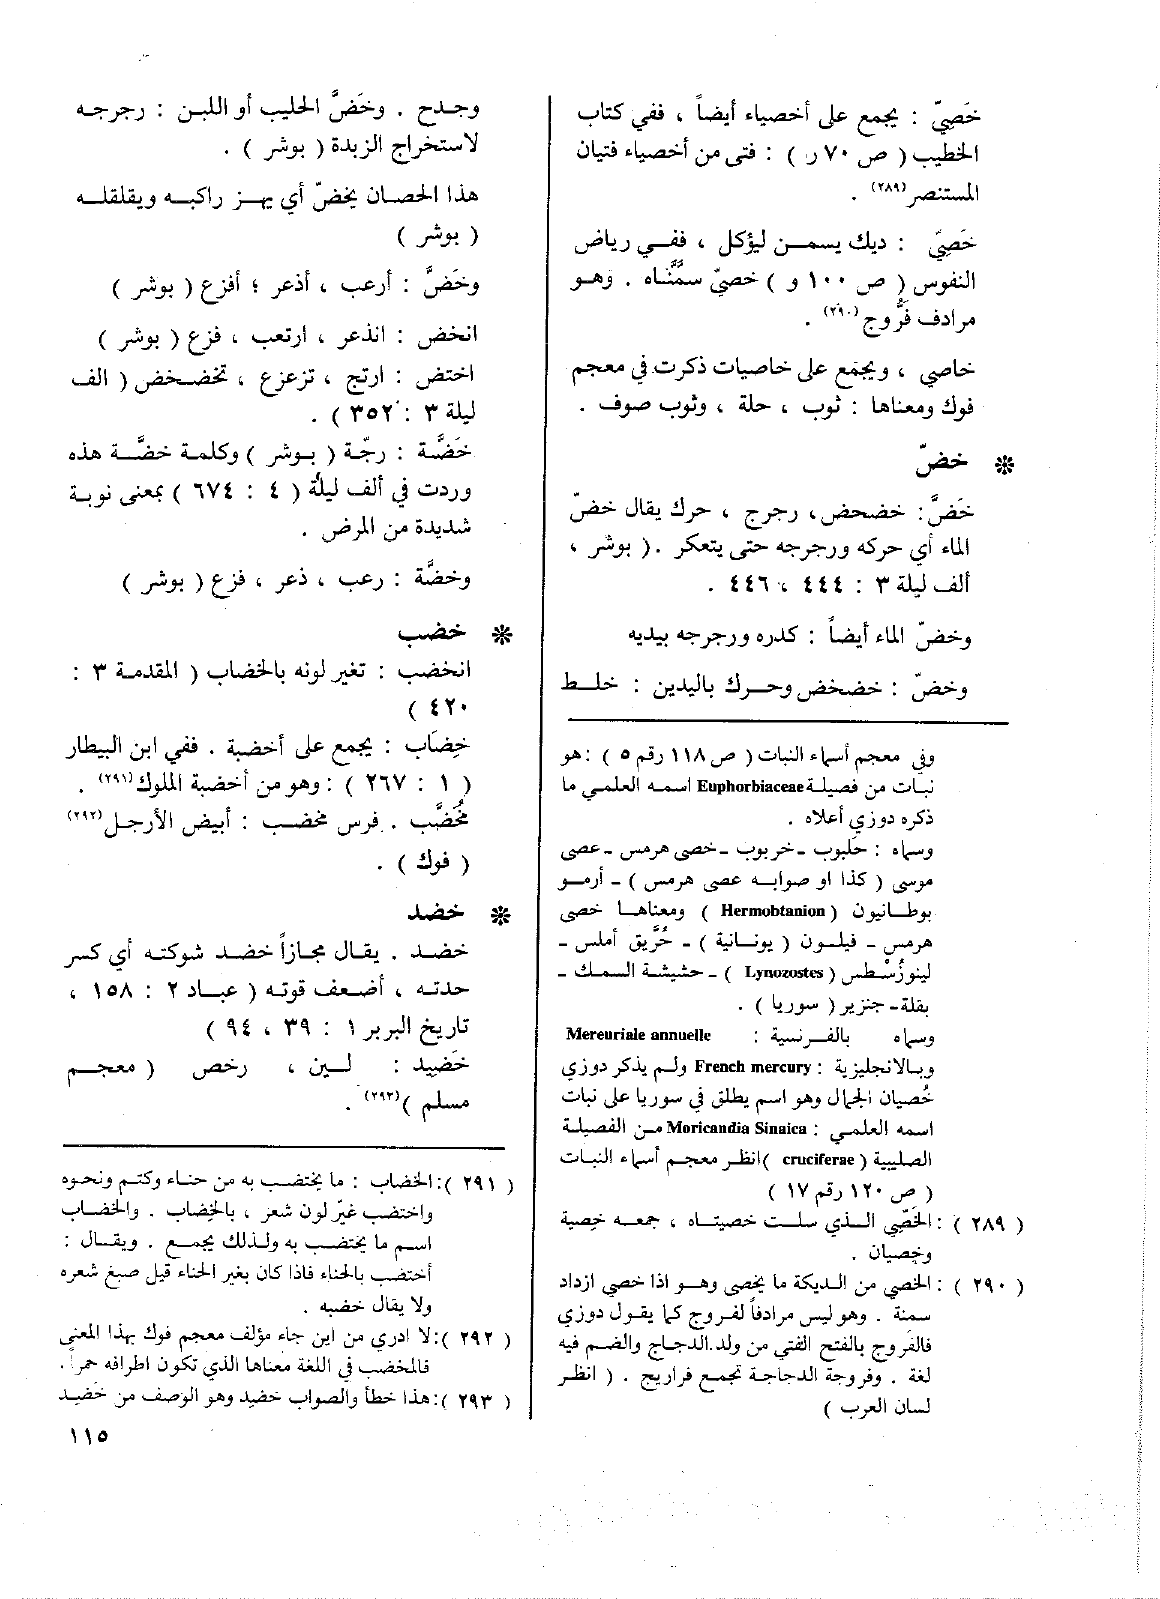 خَصِيّ : يجمع على أخصياء أيضاً ، ففي كتاب
الخطيب ( ص ٧٠ ر ) : فتى من أخصياء فتيان
المستنصر(٢٨٩) .
خَصِيّ : ديك يسمن ليؤكل ، ففي رياض
النفوس ( ص ١٠٠ و ) خصيّ سمَّناه . وهو
مرادف فَرُّوج(٢٩٠) .
خاصي ، ويجمع على خاصيات ذكرت في معجم
فوك ومعناها : ثوب ، حلة ، وثوب صوف .
* خضّ
خَضَّ : خضخض ، رجرج ، حرك يقال خضّ
الماء أي حركه ورجرجه حتى يتعكر . ( بوشر ،
ألف ليلة ٣ : ٤٤٤ ، ٤٤٦ .
وخضّ الماء أيضاً : كدره ورجرجه بيديه
وخضّ : خضخض وحرك باليدين : خلط
وفي معجم أسماء النبات ( ص ١١٨ رقم ٥ ) : هو
نبات من فصيلة Euphorbiaceae اسمه العلمي ما
ذكره دوزي أعلاه .
وسماه : حلبوب - خربوب - خصى هرمس - عصى
موسى ( كذا او صوابه عصى هرمس ) - أرمو
بوطانيون ( Hermobtanion ) ومعناها خصى
هرمس - فيلون ( يونانية ) - حُرَّيق أملس -
لينوزُسْطس ( Lynozostes ) - حشيشة السمك -
بقلة - جنزير ( سوريا ) .
وسماه بالفرنسية : Mereuriale annuelle
وبالانجليزية : French mercury ولم يذكر دوزي
خُصيان الجمال وهو اسم يطلق في سوريا على نبات
اسمه العلمي : Moricandia Sinaica من الفصيلة
الصليبية ( cruciferae ) انظر معجم أسماء النبات
( ص ١٢٠ رقم ١٧ )
( ٢٨٩ ) : الخَصِّي الذي سلت خصيتاه ، جمعه خِصية
وخِصيان .
( ٢٩٠ ) : الخصي من الديكة ما يخصى وهو اذا خصي ازداد
سمنة . وهو ليس مرادفاً لفروج كما يقول دوزي
فالفَروج بالفتح الفتي من ولد الدجاج والضم فيه
لغة . وفروجة الدجاجة تجمع فراريج . ( انظر
لسان العرب )
وجدح . وخَضَّ الحليب أو اللبن : رجرجه
لاستخراج الزبدة ( بوشر ) .
هذا الحصان يخضّ أي يهز راكبه ويقلقله
( بوشر )
وخَضَّ : أرعب ، أذعر ؛ أفزع ( بوشر )
انخض : انذعر ، ارتعب ، فزع ( بوشر )
اختض : ارتج ، تزعزع ، تخضخض ( الف
ليلة ٣ : ٣٥٢ ) .
خَضَّة : رجّة ( بوشر ) وكلمة خضَّة هذه
وردت في ألف ليلة ( ٤ : ٦٧٤ ) بمعنى نوبة
شديدة من المرض .
وخضَّة : رعب ، ذعر ، فزع ( بوشر )
* خضب
انخضب : تغير لونه بالخضاب ( المقدمة ٣ :
٤٢٠ )
خِضَاب : يجمع على أخضبة . ففي ابن البيطار
( ١ : ٢٦٧ ) : وهو من أخضبة الملوك(٢٩١) .
مُخَضَّب . فرس مخضب : أبيض الأرجل(٢٩٢)
( فوك ) .
* خضد
خضد . يقال مجازاً خضد شوكته أي كسر
حدته ، أضعف قوته ( عباد ٢ : ١٥٨ ،
تاريخ البربر ١ : ٣٩ ، ٩٤ )
خَضِيد : لين ، رخص ( معجم
مسلم )(٢٩٣) .
( ٢٩١ ) : الخضاب : ما يختضب به من حناء وكتم ونحوه
واختضب غيّر لون شعر ، بالخِضاب . والخضاب
اسم ما يختضب به ولذلك يجمع . ويقال :
أختضب بالحناء فاذا كان بغير الحناء قيل صبغ شعره
ولا يقال خضبه .
( ٢٩٢ ) : لا ادري من اين جاء مؤلف معجم فوك بهذا المعنى
فالمخضب في اللغة معناها الذي تكون اطرافه حمراً .
( ٢٩٣ ) : هذا خطأ والصواب خضيد وهو الوصف من خَضِيد
١١٥